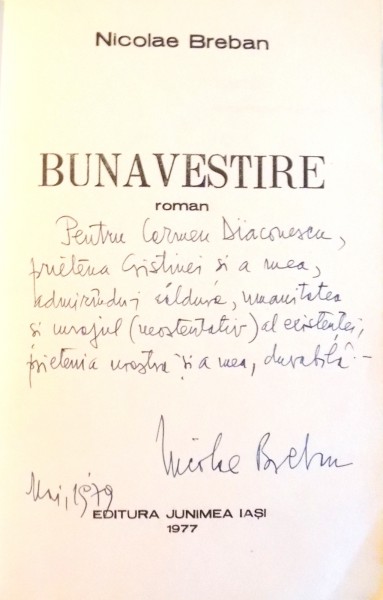 Nicolae Breban
BUNAVESTIRE
roman
Pentru Carmen Diaconescu,
prietena Cristinei si a mea,
admirîndu-i căldura, umanitatea
si curajul (neostentativ) al existenței,
prietenia noastră și a mea, durabilă –
Nicolae Breban
Mai, 1979
EDITURA JUNIMEA IAȘI
1977